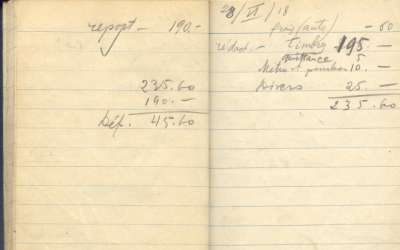 report — 190.-
235.60
190.—
Dép. 45.60
28/VI/18
frais (auto) — -60
rédact. — Timbre 195 —
quittance 5
Metro + pourboire 10. —
Divers 25. —
235.60